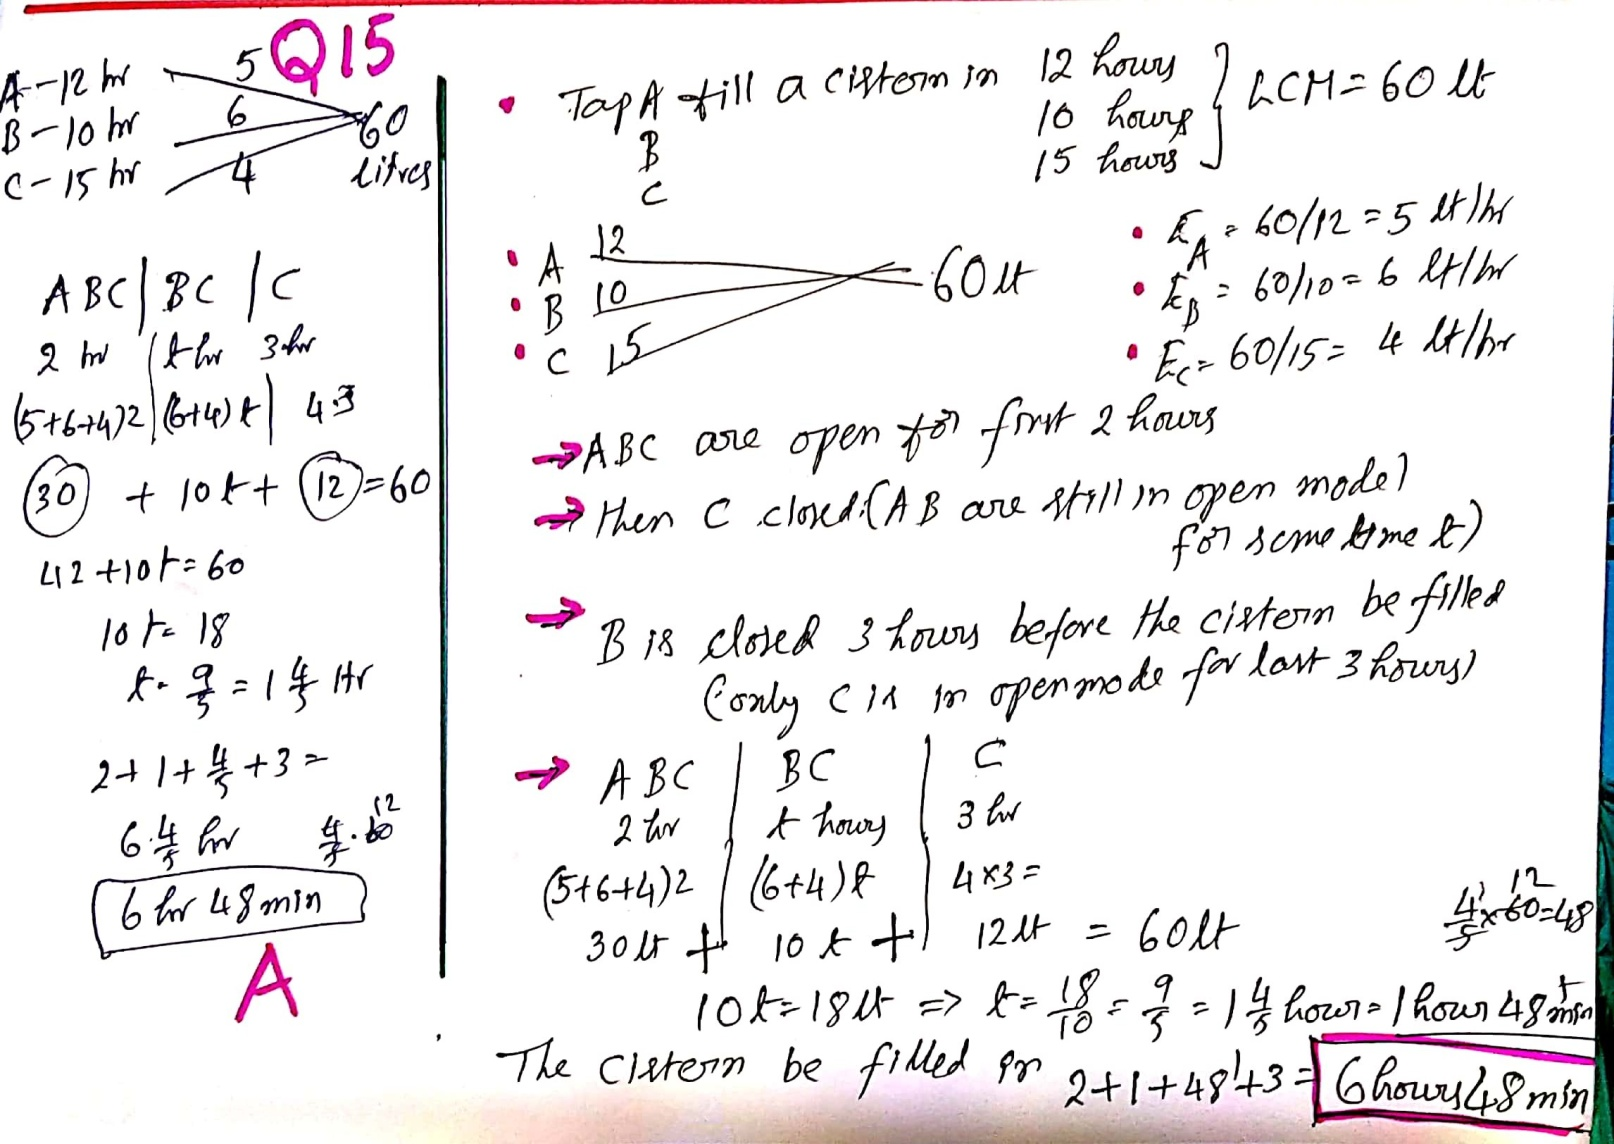 Q15
A-12 hr 5
B-10 hr 6 60
C-15 hr 4 litres
ABC | BC | C
2 hr | t hr 3 hr
(5+6+4)2 | (6+4)t | 4·3
30 + 10t + 12 = 60
42+10t=60
10t= 18
t= 9/5 = 1 4/5 Hr
2+1+4/5+3=
6 4/5 hr 4/5·60 12
6 hr 48min
A
• Tap A fill a cistern in 12 hours
B 10 hours } LCM=60 lt
C 15 hours
• A 12
• B 10 60lt
• C 15
• EA = 60/12 = 5 lt/hr
• EB = 60/10 = 6 lt/hr
• EC= 60/15= 4 lt/hr
→ABC are open for first 2 hours
→ then C closed.(AB are still in open mode)
for some time t)
→ B is closed 3 hours before the cistern be filled
(only C is in open mode for last 3 hours)
→ ABC | BC | C
2 hr | t hours | 3 hr
(5+6+4)2 | (6+4)t | 4×3=
30lt + 10t + 12lt = 60lt
4/5×60=48 12
10t=18lt => t= 18/10 = 9/5 = 1 4/5 hour= 1 hour 48 min
The cistern be filled in 2+1+48'+3= 6hours48min